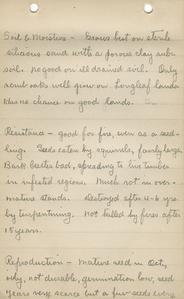 Soil & Moisture - Grows best on sterile
silicious sand with a porous clay sub-
soil. no good on ill drained soil. Only
scrub oaks will grow on Longleaf lands
has no chance on good lands.
Resistance - good for fire, even as a seed-
ling. Seeds eaten by squirrels, fairly large,
Bark beetles bad, spreading to live timber
in infested regions. Much rot in over-
mature stands. Destroyed after 4-6 yrs
by turpentining. Not killed by fires after
15 years.
Reproduction - Mature seed in Oct,
oily, not durable, germination low, seed
years very scarce but a few seeds every